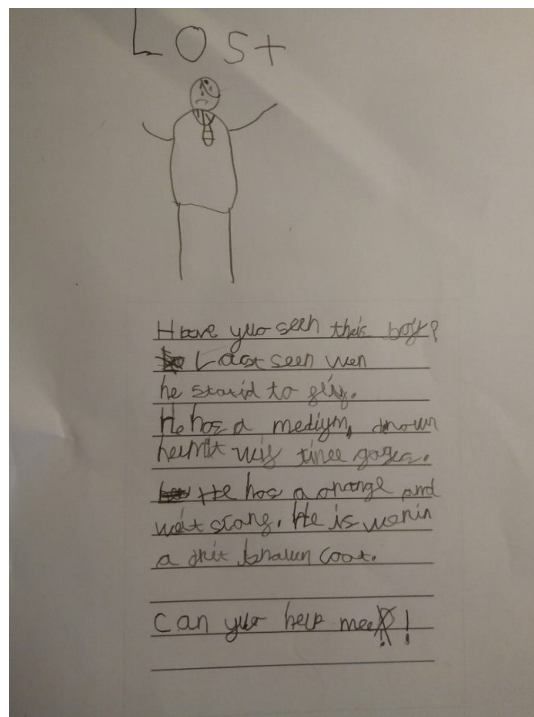 LOST
Have yuo seen this boy?
Last seen wen
he starid to fliy.
He has a mediym, drown
helmit wif tinee gogls.
He has a orange and
wit scarg. He is werin
a drit brawn coat.
Can yuo help mee!